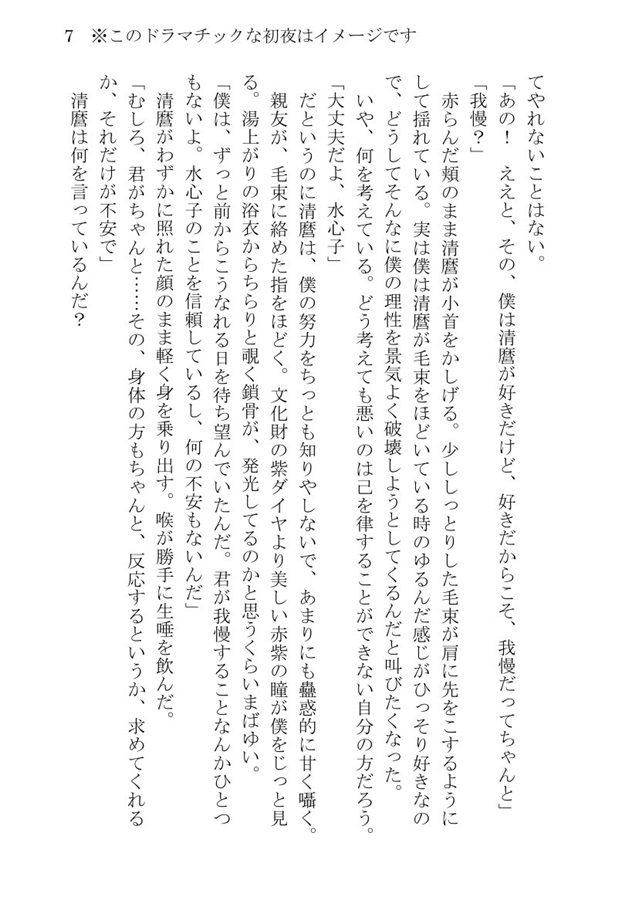 7 ※このドラマチックな初夜はイメージです
てやれないことはない。
「あの！ ええと、その、僕は清麿が好きだけど、好きだからこそ、我慢だってちゃんと」
「我慢？」
赤らんだ頬のまま清麿が小首をかしげる。少ししっとりした毛束が肩に先をこするように
して揺れている。実は僕は清麿が毛束をほどいている時のゆるんだ感じがひっそり好きなの
で、どうしてそんなに僕の理性を景気よく破壊しようとしてくるんだと叫びたくなった。
いや、何を考えている。どう考えても悪いのは己を律することができない自分の方だろう。
「大丈夫だよ、水心子」
だというのに清麿は、僕の努力をちっとも知りやしないで、あまりにも蠱惑的に甘く囁く。
親友が、毛束に絡めた指をほどく。文化財の紫ダイヤより美しい赤紫の瞳が僕をじっと見
る。湯上がりの浴衣からちらりと覗く鎖骨が、発光してるのかと思うくらいまばゆい。
「僕は、ずっと前からこうなれる日を待ち望んでいたんだ。君が我慢することなんかひとつ
もないよ。水心子のことを信頼しているし、何の不安もないんだ」
清麿がわずかに照れた顔のまま軽く身を乗り出す。喉が勝手に生唾を飲んだ。
「むしろ、君がちゃんと……その、身体の方もちゃんと、反応するというか、求めてくれる
か、それだけが不安で」
清麿は何を言っているんだ？